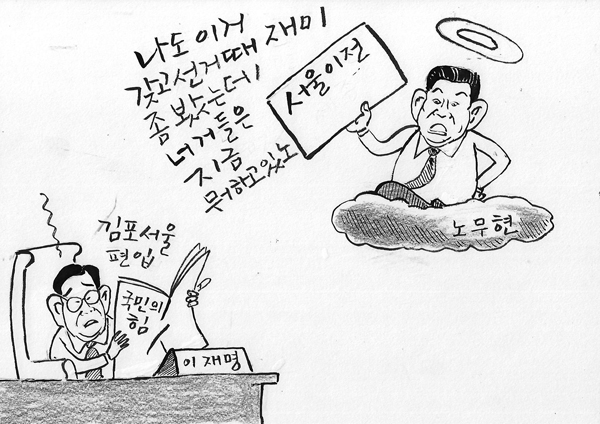 나도 이거
갖고선거때 재미
좀 봤는데!
너거들은
지금
뭐하고있노
서울이전
노무현
김포서울
편입
국민의
힘
이재명